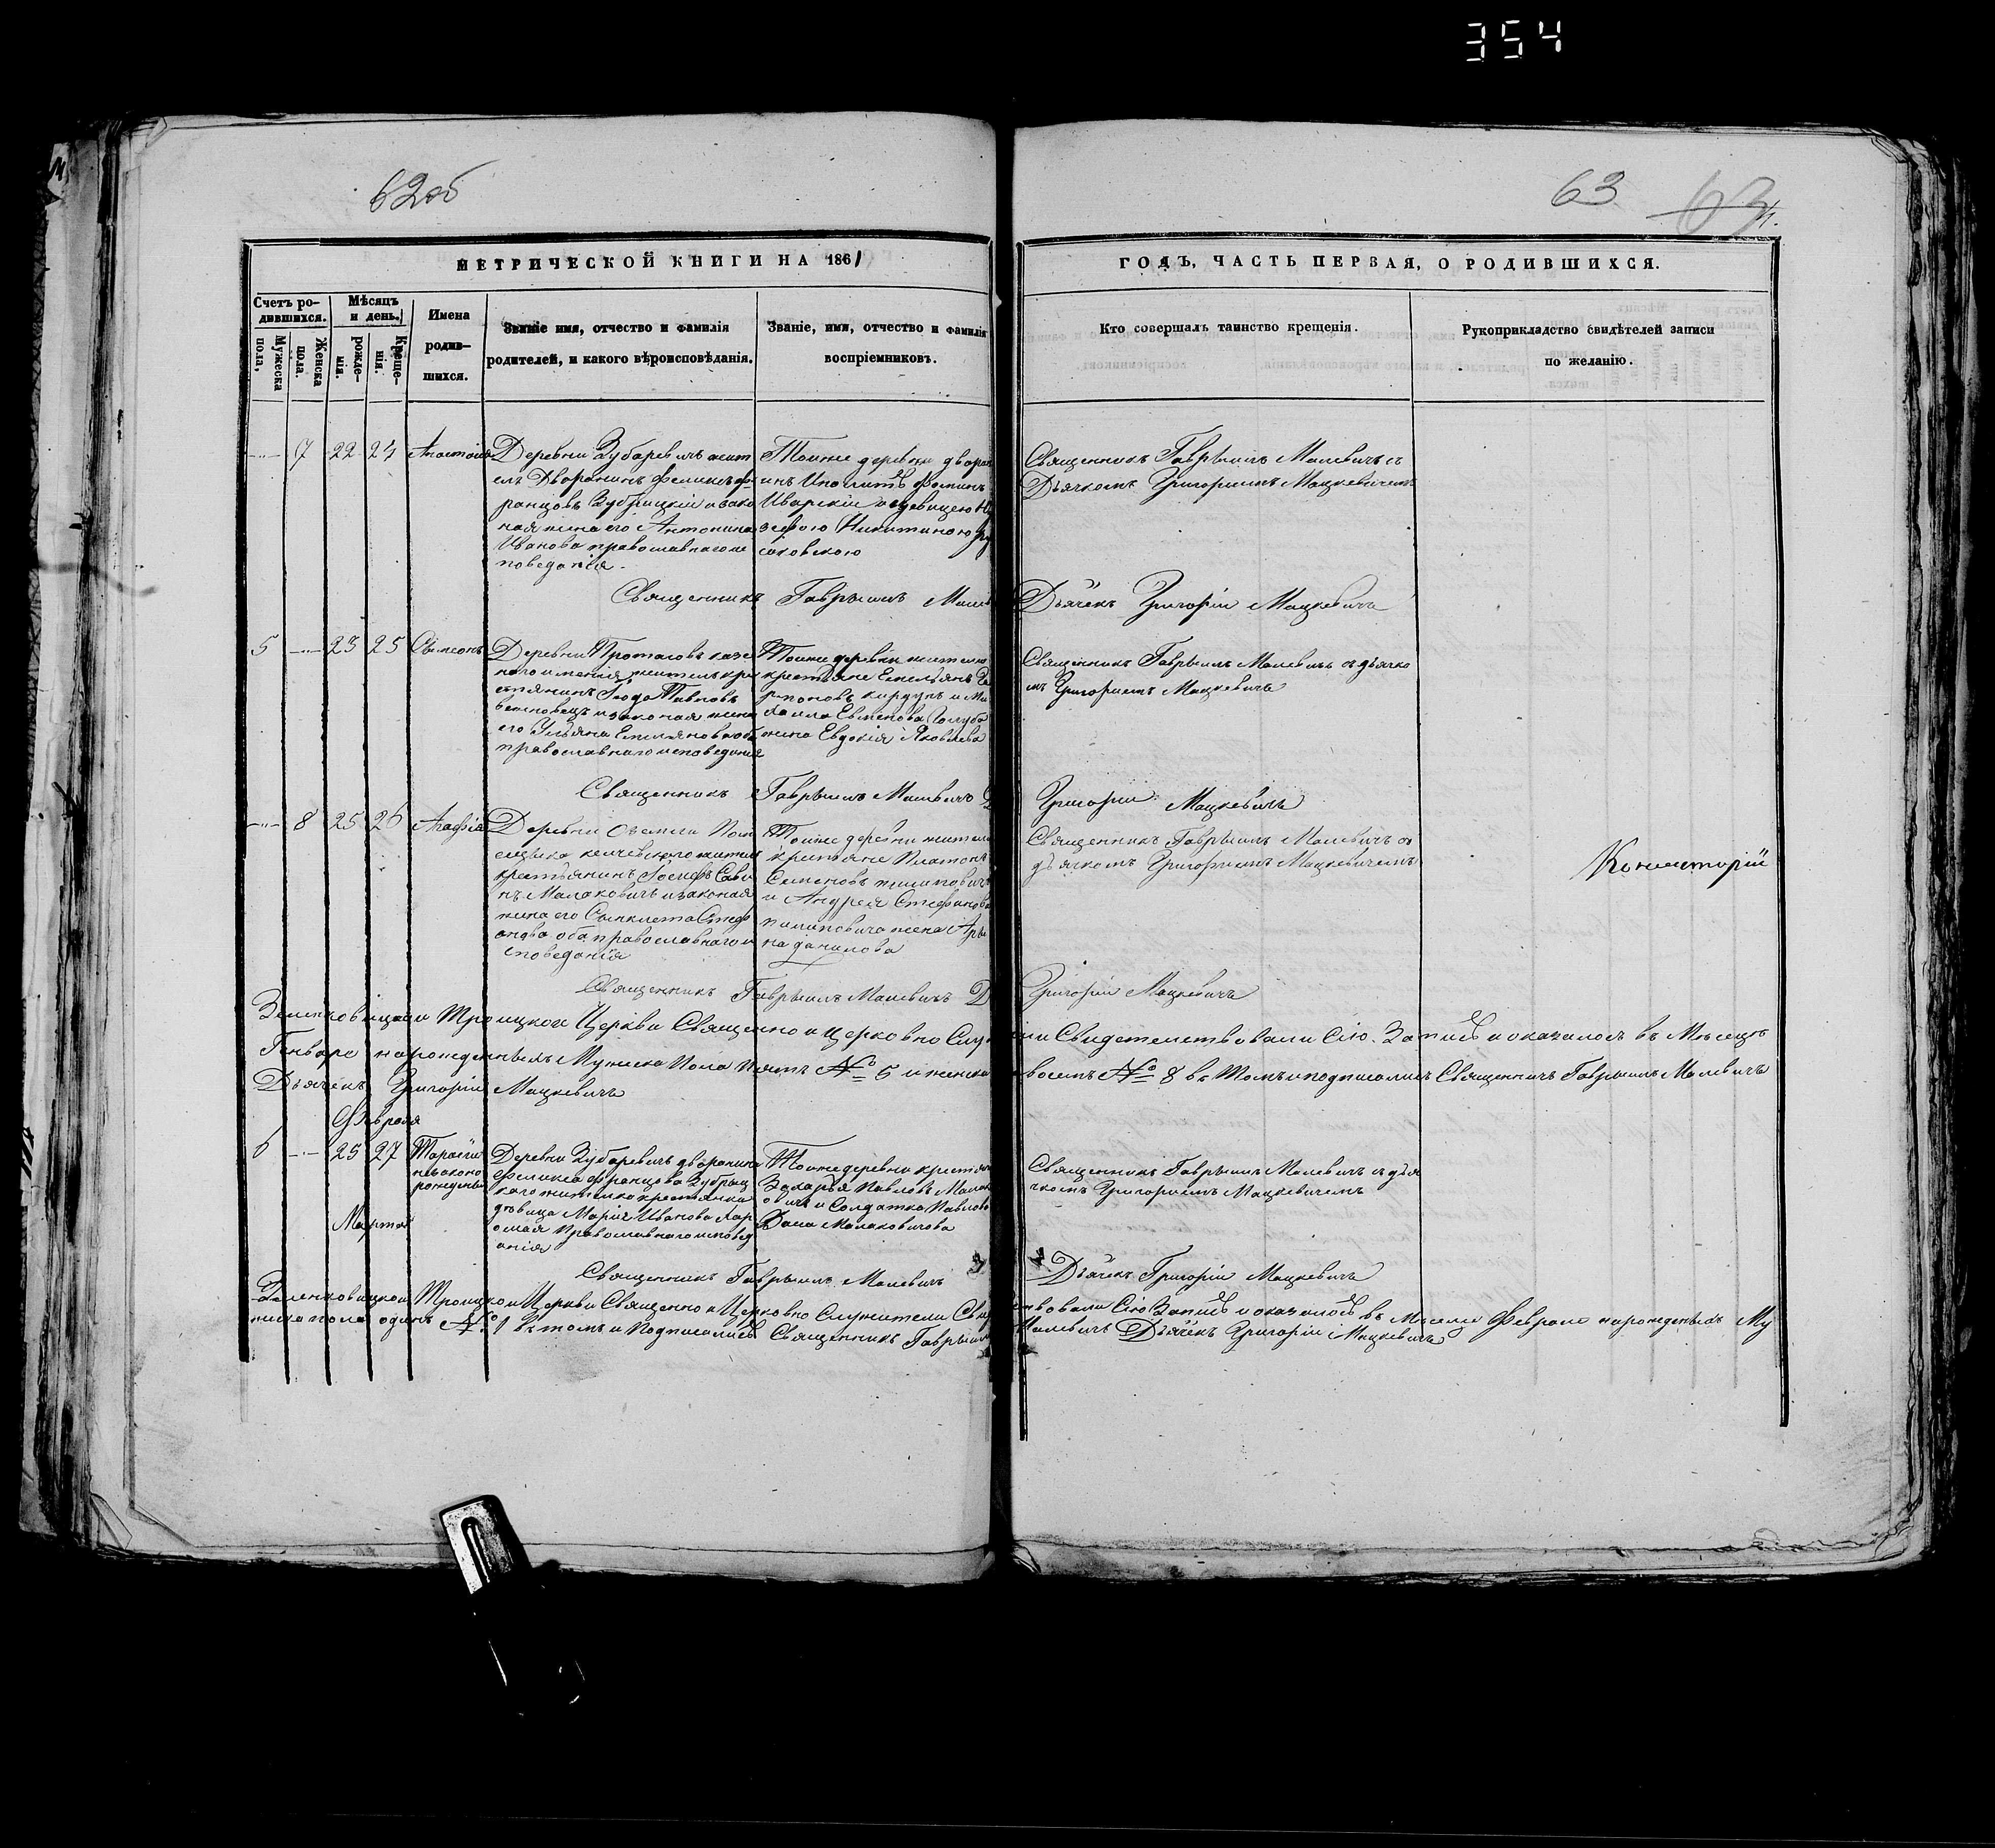 354
62об
63
МЕТРИЧЕСКОЙ КНИГИ НА 1861
ГОДЪ, ЧАСТЬ ПЕРВАЯ, О РОДИВШИХСЯ.
Счетъ родившихся.
Мужеска пола,
Женска пола.
Мѣсяцъ и день.
рожденія.
Крещенія.
Имена родившихся.
Званіе имя, отчество и фамилія
родителей, и какого вѣроисповѣданія.
Званіе, имя, отчество и фамилія
воспріемниковъ.
Кто совершалъ таинство крещенія.
Рукоприкладство свидѣтелей записи
по желанію.
7 22 24
Деревни Зубаревичъ жит
ель Дворянинъ Феликсъ Ф
ранцовъ Зубрицкій и зако
ная жена его Антонина
Иванова православнаго ис
поведанія.
Тойже деревни дворян
инъ Иполитъ Фоминъ
Никитиною
Священникъ Гаврыилъ Малевичъ съ
Дьячкомъ Григориемъ Мацкевичемъ
Священникъ Гаврыилъ Малев
Дьячекъ Григорій Мацкевичъ
5 23 25 Сымеонъ
Деревни Протасовъ казе
ного имения жителъ кре
стянинъ
и законая жена
его Ульяна Емельянова оба
православнаго исповедания
Тойже деревни жители
крестьяне Емельянъ
Евдокія Яковлева
Священникъ Гаврыилъ Малевичъ съ дьячко
мъ Григориемъ Мацкевичъ
Священникъ Гаврыилъ Малевичъ
Григорій Мацкевичъ
8 25 26 Агафія
Деревни Оземли Пом
жител
крестьянинъ Іосифъ Сави
нъ Малаховичъ и законая
жена его Сынклета Стеф
анова оба православнаго и
споведанія
Тойже деревни жители
крестяне Платонъ
Семеновъ пилиповичъ
и Андрея Стефанова
пилиповича жена Ары
на данилова
Священникъ Гаврыилъ Малевичъ съ
дьячкомъ Григориемъ Мацкевичемъ
Консисторій
Священникъ Гаврыилъ Малевичъ Д
Григорій Мацкевичъ
Зеленковицкой Троицкой Церкви Священно и Церковно Служ
ели Свидетельствовали Сію Запись и оказалося въ Месецъ
Генваре нарожденныхъ Мужеска Пола Пять № 5 и женска
восемъ № 8 въ Томъ и подписались Священникъ Гаврыилъ Малевичъ
Дьячекъ Григорій Мацкевичъ
Февраля
6 25 27 Тарасій
незаконо
рожденый
Деревни Зубаревичъ дворянина
Феликса Францова Зубрыц
каго жителка крестянка
девица Марія Иванова
Православнаго исповед
анія
Тойже деревни крестян
Захарья Павловъ Малах
овичъ и Солдатка Павлова
Малаховичова
Священникъ Гаврыилъ Малевичъ съ дья
чкомъ Григориемъ Мацкевичемъ
Марта
Священникъ Гаврыилъ Малевичъ
Дьячекъ Григорій Мацкевичъ
Зеленковицкой Троицкой Церкви Священно и Церковно Служители Свид
ствовали Сію Запись и оказалось въ Месеце Феврале нарожденыхъ Му
жеска пола одинъ № 1 въ томъ и Подписались Священникъ Гаврыилъ
Малевичъ Дьячекъ Григорій Мацкевичъ